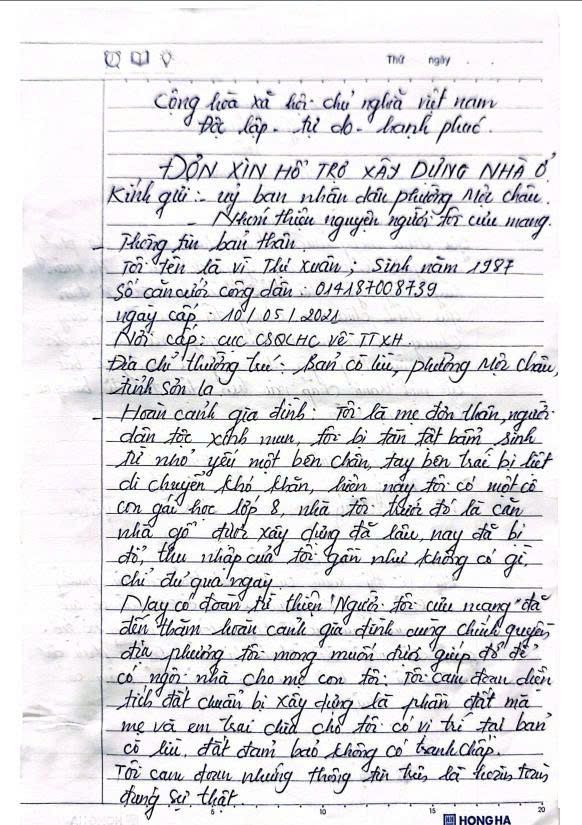 Thứ ngày
Cộng hòa xã hội chủ nghĩa việt nam
Độc lập - tự do - hạnh phúc.
ĐƠN XIN HỖ TRỢ XÂY DỰNG NHÀ Ở
Kính gửi: - uỷ ban nhân dân phường Mộc châu.
- Nhóm thiện nguyện người tôi cưu mang.
- Thông tin bản thân.
Tôi tên là vì Thị Xuân; Sinh năm 1987
Số căn cước công dân: 014187008739
ngày cấp: 10/05/2021
Nơi cấp: cục CSQLHC về TTXH.
Địa chỉ thường trú: Bản cò liu, phường Mộc châu,
tỉnh Sơn la
- Hoàn cảnh gia đình: Tôi là mẹ đơn thân, người
dân tộc xinh mun, tôi bị tàn tật bẩm sinh
từ nhỏ yếu một bên chân, tay bên trái bị liệt
di chuyển khó khăn, hiện nay tôi có một cô
con gái học lớp 8, nhà tôi trước đó là căn
nhà gỗ được xây dựng đã lâu, nay đã bị
đổ, thu nhập của tôi gần như không có gì,
chỉ đủ qua ngày
Nay có đoàn từ thiện "Người tôi cưu mang" đã
đến thăm hoàn cảnh gia đình cùng chính quyền
địa phương tôi mong muốn được giúp đỡ để
có ngôi nhà cho mẹ con tôi. Tôi cam đoan diện
tích đất chuẩn bị xây dựng là phần đất mà
mẹ và em trai chia cho tôi có vị trí tại bản
cò liu, đất đảm bảo không có tranh chấp.
Tôi cam đoan những thông tin trên là hoàn toàn
đúng sự thật.
5 10 15 20
HONG HA